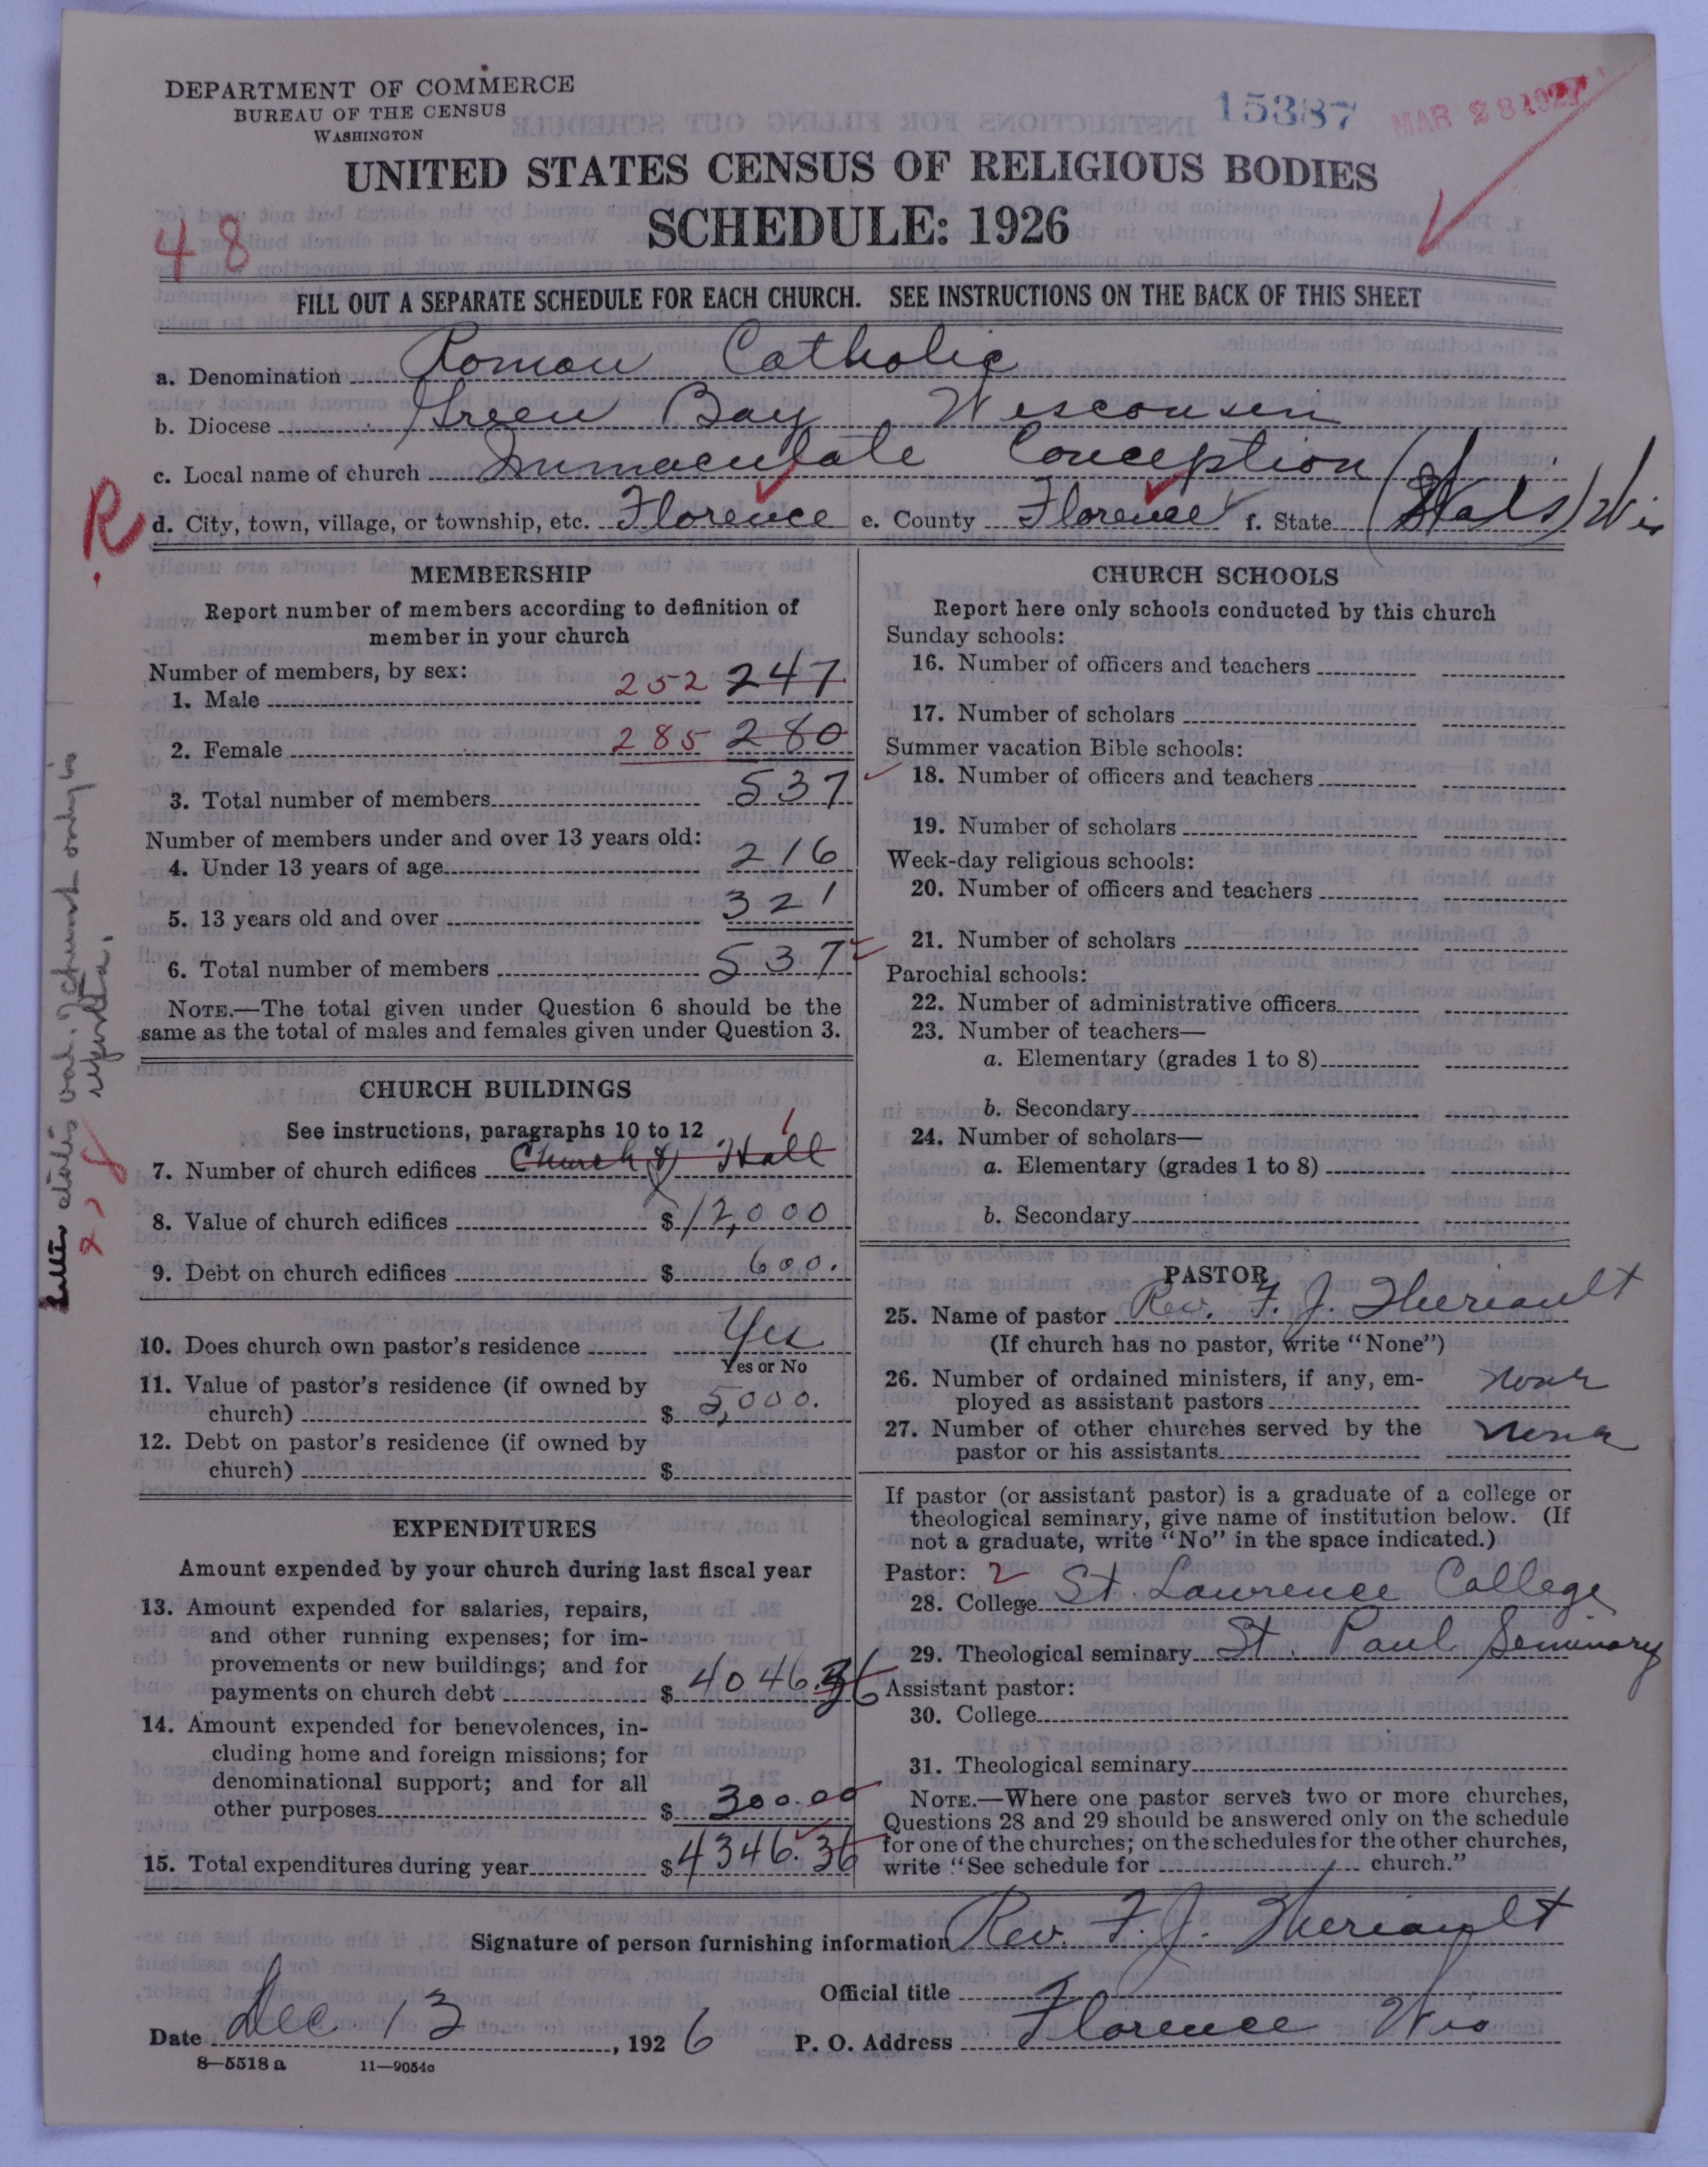 DEPARTMENT OF COMMERCE
BUREAU OF THE CENSUS
WASHINGTON
15387
MAR 28 1927
UNITED STATES CENSUS OF RELIGIOUS BODIES
SCHEDULE: 1926
48
FILL OUT A SEPARATE SCHEDULE FOR EACH CHURCH. SEE INSTRUCTIONS ON THE BACK OF THIS SHEET
a. Denomination Roman Catholic
b. Diocese Green Bay Wisconsin
c. Local name of church Immaculate Conception
R d. City, town, village, or township, etc. Florence e. County Florence f. State Wis
MEMBERSHIP
Report number of members according to definition of
member in your church
Number of members, by sex:
1. Male 252 247
2. Female 285 280
3. Total number of members 537
Number of members under and over 13 years old:
4. Under 13 years of age 216
5. 13 years old and over 321
6. Total number of members 537
NOTE.—The total given under Question 6 should be the
same as the total of males and females given under Question 3.
CHURCH BUILDINGS
See instructions, paragraphs 10 to 12
1
7. Number of church edifices Church & Hall
8. Value of church edifices $ 12,000
9. Debt on church edifices $ 600.
10. Does church own pastor's residence Yes
Yes or No
11. Value of pastor's residence (if owned by
church) $ 5,000.
12. Debt on pastor's residence (if owned by
church) $
EXPENDITURES
Amount expended by your church during last fiscal year
13. Amount expended for salaries, repairs,
and other running expenses; for im-
provements or new buildings; and for
payments on church debt $ 4046.36
14. Amount expended for benevolences, in-
cluding home and foreign missions; for
denominational support; and for all
other purposes $ 300.00
15. Total expenditures during year $ 4346.36
CHURCH SCHOOLS
Report here only schools conducted by this church
Sunday schools:
16. Number of officers and teachers
17. Number of scholars
Summer vacation Bible schools:
18. Number of officers and teachers
19. Number of scholars
Week-day religious schools:
20. Number of officers and teachers
21. Number of scholars
Parochial schools:
22. Number of administrative officers
23. Number of teachers—
a. Elementary (grades 1 to 8)
b. Secondary
24. Number of scholars—
a. Elementary (grades 1 to 8)
b. Secondary
PASTOR
25. Name of pastor Rev. F. J. Theriault
(If church has no pastor, write "None")
26. Number of ordained ministers, if any, em-
ployed as assistant pastors none
27. Number of other churches served by the
pastor or his assistants none
If pastor (or assistant pastor) is a graduate of a college or
theological seminary, give name of institution below. (If
not a graduate, write "No" in the space indicated.)
Pastor: 2
28. College St. Lawrence College
29. Theological seminary St. Paul Seminary
Assistant pastor:
30. College
31. Theological seminary
NOTE.—Where one pastor serves two or more churches,
Questions 28 and 29 should be answered only on the schedule
for one of the churches; on the schedules for the other churches,
write "See schedule for church."
Signature of person furnishing information Rev. F. J. Theriault
Official title
Date Dec 13, 1926 P. O. Address Florence Wis
8—5518 a 11—9054a
Letter states val. church only is